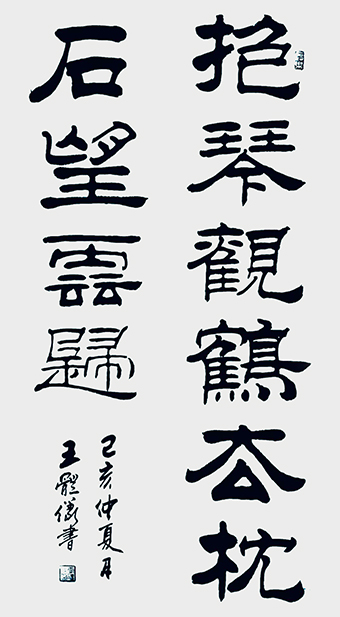 抱琴觀鶴去枕
石望雲歸
己亥仲夏月
王體儀書